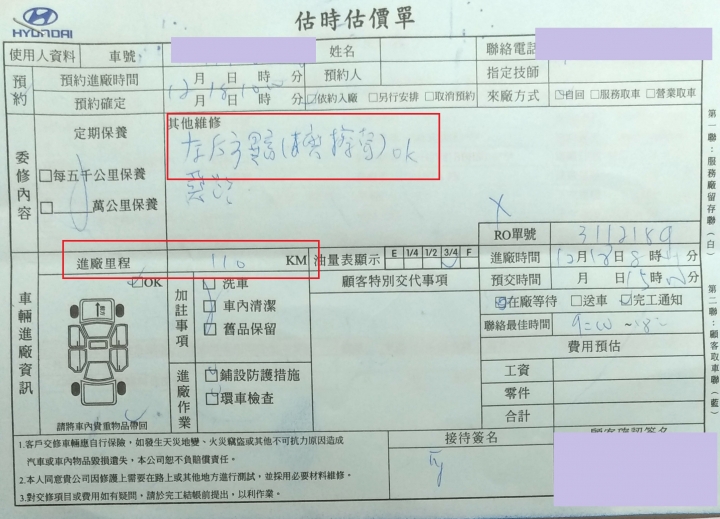 HYUNDAI
估時估價單
使用人資料 車號 姓名 聯絡電話
預約 預約進廠時間 12月18日10時00分 預約人 指定技師
預約確定 月 日 時 分 ☑依約入廠 □另行安排 □取消預約 來廠方式 ☑自回 □服務取車 □營業取車
委修內容 定期保養 其他維修
□每五千公里保養
□ 萬公里保養
ok
RO單號 3112189
進廠里程 110 KM 油量表顯示 E 1/4 1/2 3/4 F 進廠時間 12月18日8時 分
預交時間 月 日15時 分
車輛進廠資訊 ☑OK 加註事項 顧客特別交代事項
□洗車
□車內清潔
□舊品保留
□在廠等待 □送車 ☑完工通知
聯絡最佳時間
費用預估
工資
零件
合計
進廠作業 □鋪設防護措施
□環車檢查
請將車內貴重物品帶回
1.客戶交修車輛應自行保險，如發生天災地變、火災竊盜或其他不可抗力原因造成
汽車或車內物品毀損遺失，本公司恕不負賠償責任。
2.本人同意貴公司因修護上需要在路上或其他地方進行測試，並採用必要材料維修。
3.對交修項目或費用如有疑問，請於完工結帳前提出，以利作業。
接待簽名
顧客確認簽名
第一聯：服務廠留存聯(白)
第二聯：顧客取車聯(藍)